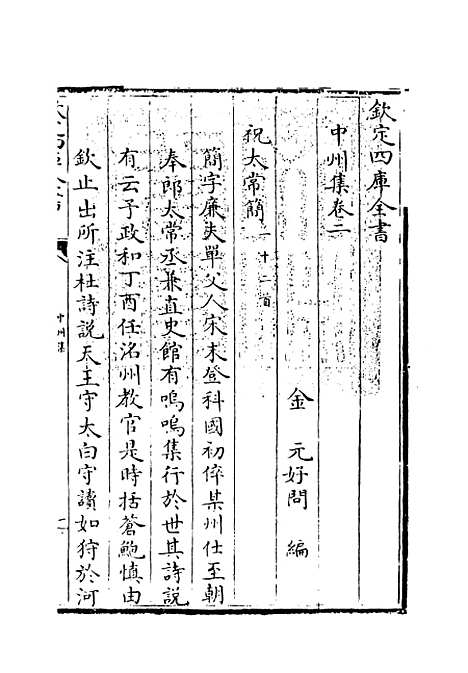 欽定四庫全書
中州集卷二
金 元好問 編
祝太常簡一十二首
簡字廉夫單父人宋末登科國初倅某州仕至朝
奉郎太常丞兼直史館有嗚嗚集行於世其詩説
有云予政和丁酉任洺州教官是時括蒼鮑慎由
欽止出所注杜詩説天王守太白守讀如狩於河
中州集